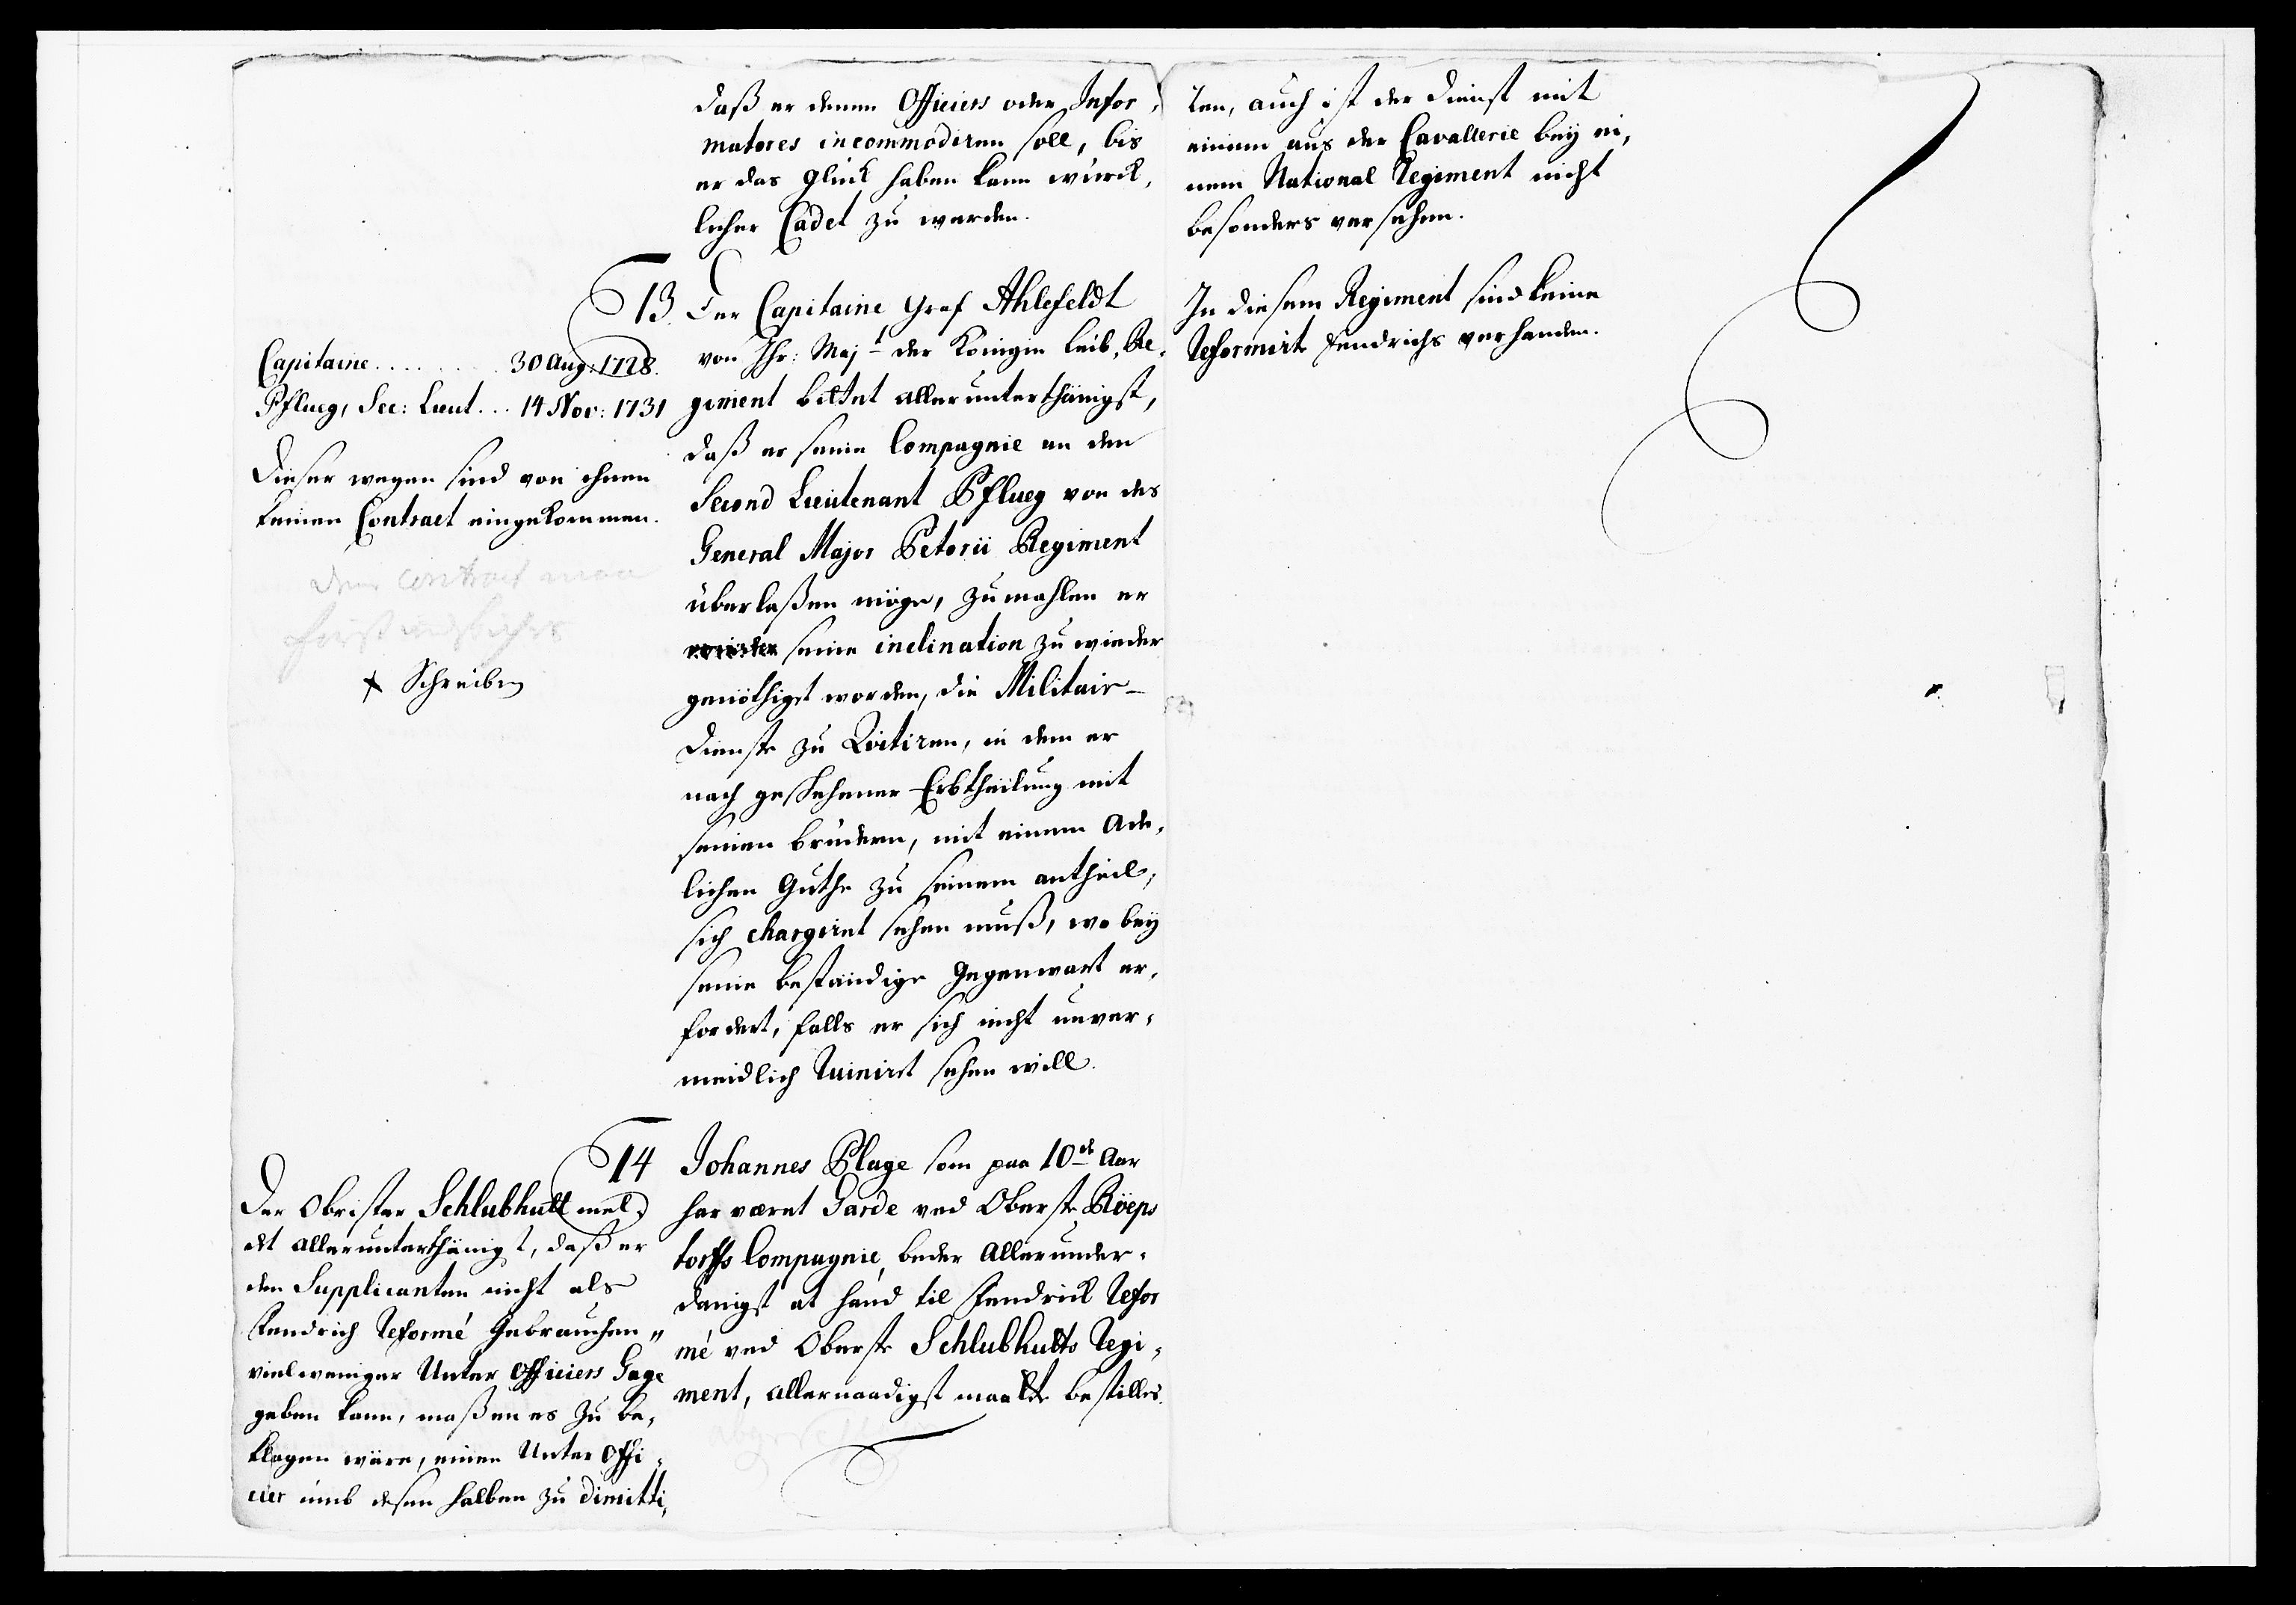 daß er denen Officiers oder Infor,
matores incommodiren soll, bis
er das glück haben kann würck,
licher Cadet zu werden.
13. Der Capitaine Graf Ahlefeldt
von Ihr: Majt der Königin Leib, Re,
giment bittet allerunterthänigst,
daß er seine Compagnie an den
Second Lieutenant Pflueg von des
General Major Petorii Regiment
überlaßen möge, zumahlen er
seine inclination zu wieder
genöthiget worden, die Militair-
Dienste zu Quitiren, in dem er
nach geschehener Erbtheilung mit
seinen brüdern, mit einem Ade,
lichen Guthe zu seinem antheil,
sich chargiret sehen muß, wo bey
seine beständige Gegenwart er,
fordert, falls er sich nicht unver,
meidlich Ruinirt sehen will.
Capitaine......... 30 Aug: 1728.
Pflueg, Sec: Lieut... 14 Nov: 1731
Dieser wegen sind von ihnen
keinen Contract eingekommen.
Schreiben
14 Johannes Plage som paa 10de Aar
har været Garde ved Oberste Röeps
torffs Compagnie, beder Allerunder,
danigst at hand til Fendrick Refor
mé ved Oberste Schlubhutts Regi,
ment, allernaadigst maatte bestilles.
Der Obrister Schlubhutt mel,
det allerunterthänigst, daß er
den Supplicanten nicht als
Fendrich Reformé Gebrauchen,,
vielweniger Unter Officiers Gage
geben kann, maßen es zu be,
klagen wäre, einen Unter Offi,
cier umb deßen halben zu dimitti,
ren, auch ist der Dienst mit
einem aus der Cavallerie bey ei,
nem National Regiment nicht
besonders versehen.
In diesem Regiment sind keine
Reformirte Fendrichs verhanden.